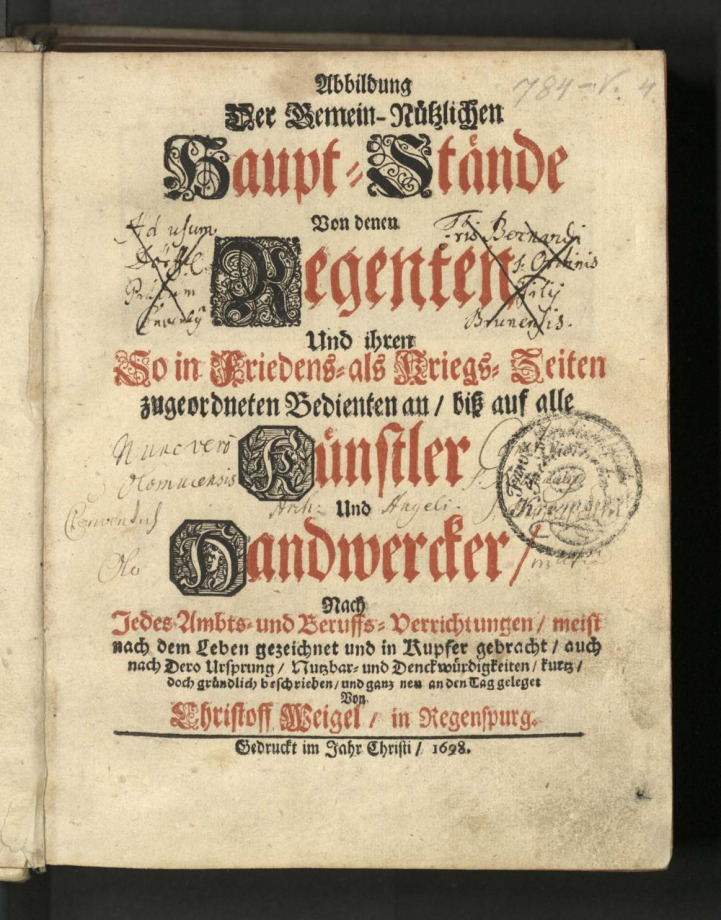 Abbildung
784-V. 4.
Der Gemein-Nützlichen
Haupt-Stände
Von denen
Ad usum
Regenten
Bernardi
Brunensis.
Und ihren
So in Friedens-als Kriegs-Zeiten
zugeordneten Bedienten an / biß auf alle
Künstler
Nunc verò
Olomucensis
Conventus
Und
Angeli
Handwercker /
Nach
Jedes Ambts-und Beruffs-Verrichtungen / meist
nach dem Leben gezeichnet und in Kupfer gebracht / auch
nach Dero Ursprung / Nutzbar-und Denckwürdigkeiten / kurtz /
doch gründlich beschrieben / und ganz neu an den Tag geleget
Von
Christoff Weigel / in Regenspurg.
Gedruckt im Jahr Christi / 1698.